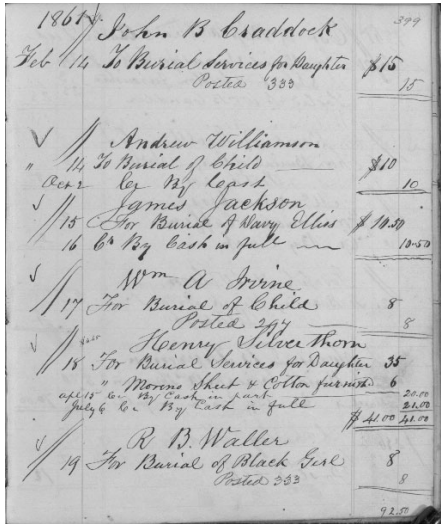 1861 John B Craddock 399
Feb 14 To Burial Services for Daughter $15
Posted 333 15
Andrew Williamson
" 14 To Burial of Child $10
Oct 2 Cr By Cash 10
James Jackson
15 For Burial of Davy Ellis $10.50
16 Cr By Cash in full 10.50
Wm A Irvine
17 For Burial of Child 8
Posted 297 8
Henry Silverthorn
18 For Burial Services for Daughter 35
" Moreno Sheet & Cotton furnished 6
apl 15 Cr By Cash in part 20.00
July 6 Cr By Cash in full 21.00
$41.00 41.00
R B. Waller
19 For Burial of Black Girl 8
Posted 333 8
92.50